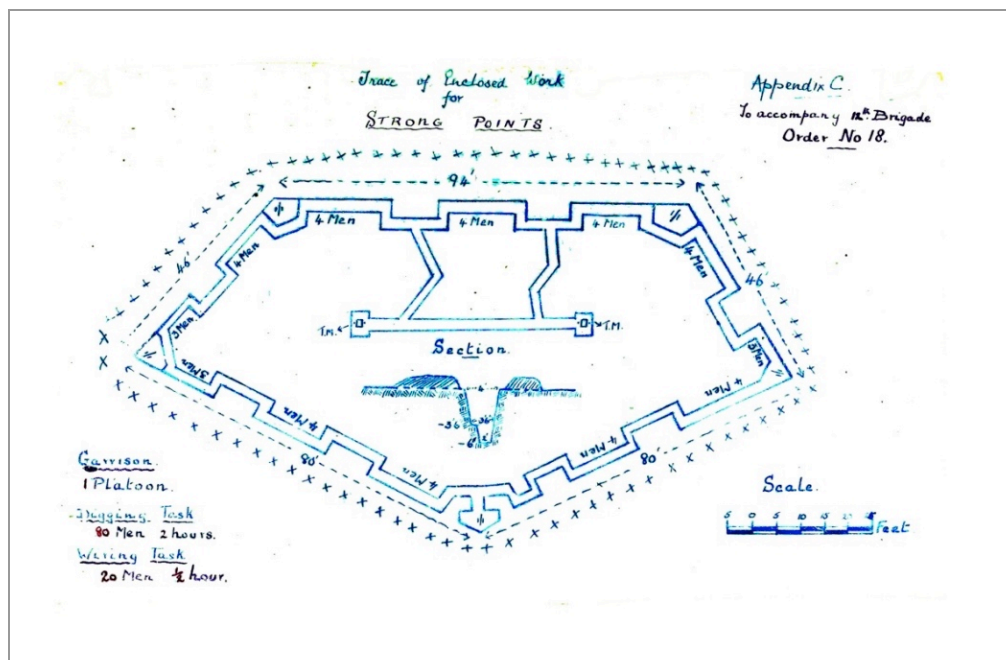 Trace of Enclosed Work
for
STRONG POINTS.
Appendix C.
To accompany 12th Brigade
Order No 18.
94'
46'
46'
4 Men
4 Men
4 Men
4 Men
4 Men
3 Men
3 Men
T.M.
T.M.
Section.
3 Men
4 Men
4 Men
4 Men
4 Men
80'
80'
-3'6
3'6
-6'
2'
Garrison.
1 Platoon.
Digging Task
80 Men 2 hours.
Wiring Task
20 Men ½ hour.
Scale.
5 0 5 10 15 20 25
Feet